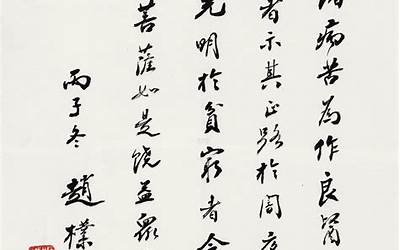 諸病苦為作良醫
者示其正路於闇夜
光明於貧窮者令
菩薩如是饒益眾
丙子冬 趙樸